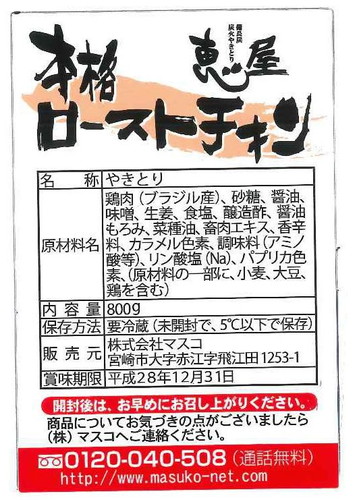 備長炭
炭火やきとり
恵屋
本格
ローストチキン
名 称 やきとり
原材料名 鶏肉(ブラジル産)、砂糖、醤油、
味噌、生姜、食塩、醸造酢、醤油
もろみ、菜種油、畜肉エキス、香辛
料、カラメル色素、調味料(アミノ
酸等)、リン酸塩(Na)、パプリカ色
素、(原材料の一部に、小麦、大豆、
鶏を含む)
内 容 量 800g
保存方法 要冷蔵(未開封で、5℃以下で保存)
販 売 元 株式会社マスコ
宮崎市大字赤江字飛江田1253-1
賞味期限 平成28年12月31日
開封後は、お早めにお召し上がりください。
商品についてお気づきの点がございましたら
(株)マスコへご連絡ください。
0120-040-508(通話無料)
http://www.masuko-net.com/